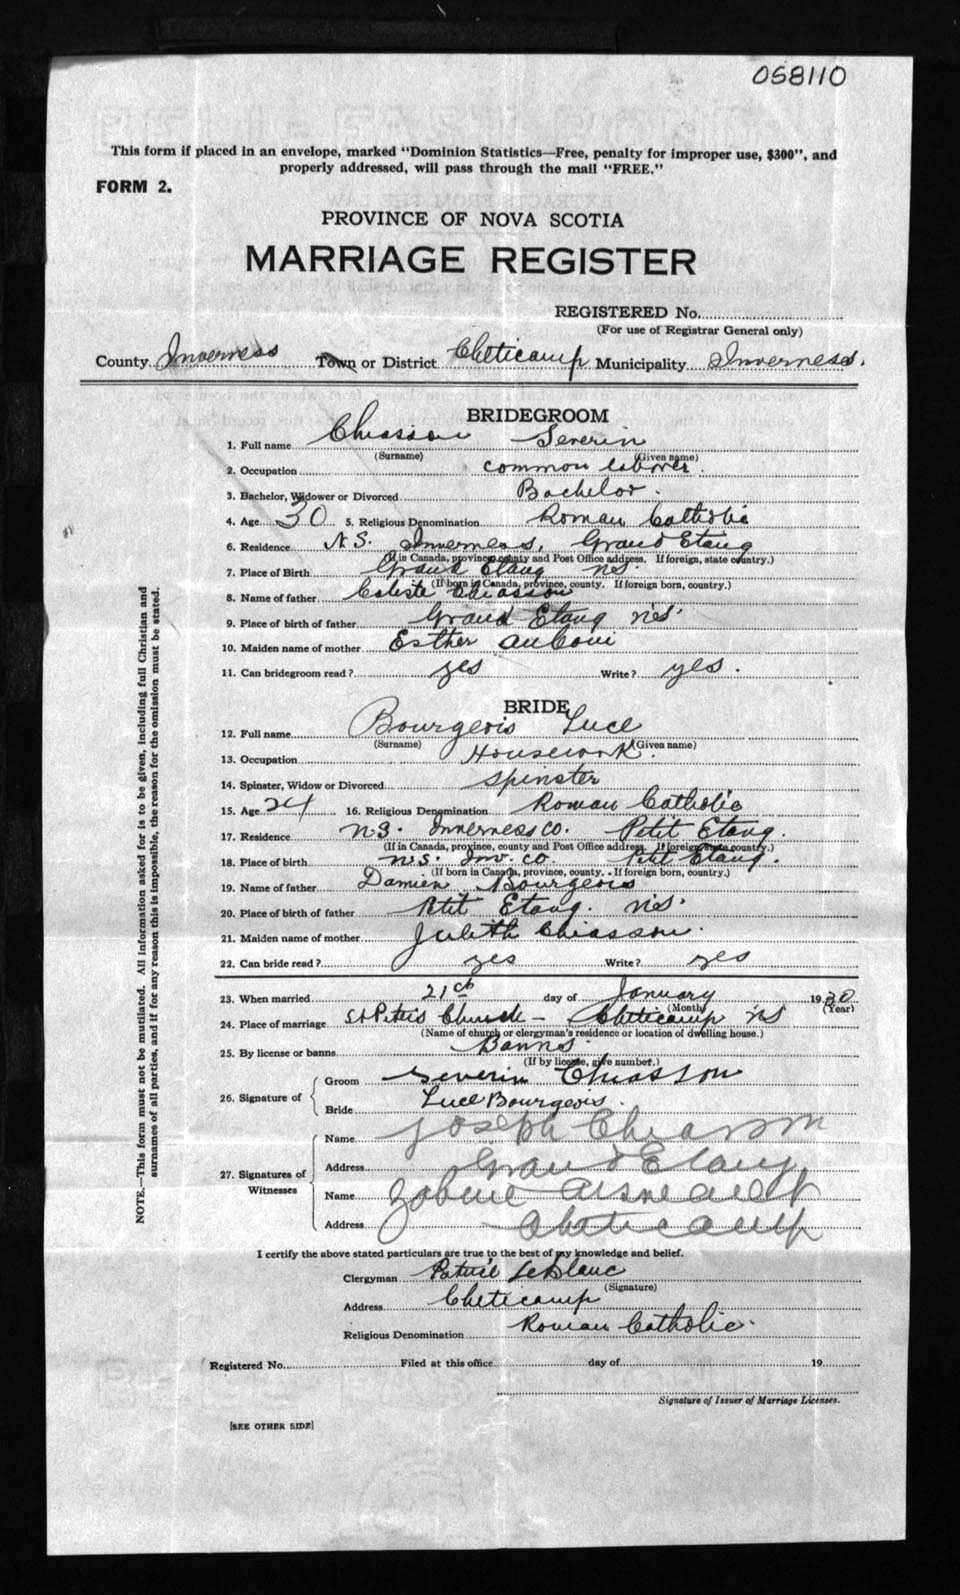 058110
This form if placed in an envelope, marked "Dominion Statistics—Free, penalty for improper use, $300", and
properly addressed, will pass through the mail "FREE."
FORM 2.
PROVINCE OF NOVA SCOTIA
MARRIAGE REGISTER
REGISTERED No.
(For use of Registrar General only)
County Inverness Town or District Cheticamp Municipality Inverness.
BRIDEGROOM
1. Full name Chiasson Severin
(Surname) (Given name)
2. Occupation common laborer.
3. Bachelor, Widower or Divorced Bachelor.
4. Age 30 5. Religious Denomination Roman Catholic
6. Residence N.S. Inverness, Grand Etang
(If in Canada, province, county and Post Office address. If foreign, state country.)
7. Place of Birth Grand Etang N.S.
(If born in Canada, province, county. If foreign born, country.)
8. Name of father Chiasson
9. Place of birth of father Grand Etang N.S.
10. Maiden name of mother Esther AuCoin
11. Can bridegroom read? yes Write? yes.
BRIDE
12. Full name Bourgeois Luce
(Surname) (Given name)
13. Occupation Housework.
14. Spinster, Widow or Divorced Spinster
15. Age 24 16. Religious Denomination Roman Catholic
17. Residence N.S. Inverness Co. Petit Etang.
(If in Canada, province, county and Post Office address. If foreign, state country.)
18. Place of birth N.S. Inv. Co. Petit Etang.
(If born in Canada, province, county. If foreign born, country.)
19. Name of father Damien Bourgeois
20. Place of birth of father Petit Etang. N.S.
21. Maiden name of mother Judith Chiasson.
22. Can bride read? yes Write? yes
23. When married 21st day of January 1930
(Month) (Year)
24. Place of marriage St Peters Church – Cheticamp NS
(Name of church or clergyman's residence or location of dwelling house.)
25. By license or banns Banns.
(If by license, give number.)
26. Signature of
Groom Severin Chiasson
Bride Luce Bourgeois.
27. Signatures of Witnesses
Name Joseph Chiasson
Address Grand Etang
Name
Address Cheticamp
I certify the above stated particulars are true to the best of my knowledge and belief.
Clergyman LeBlanc
(Signature)
Address Cheticamp
Religious Denomination Roman Catholic.
Registered No. Filed at this office day of 19
Signature of Issuer of Marriage Licenses.
[SEE OTHER SIDE]
NOTE.—This form must not be mutilated. All information asked for is to be given, including full Christian and
surnames of all parties, and if for any reason this is impossible, the reason for the omission must be stated.